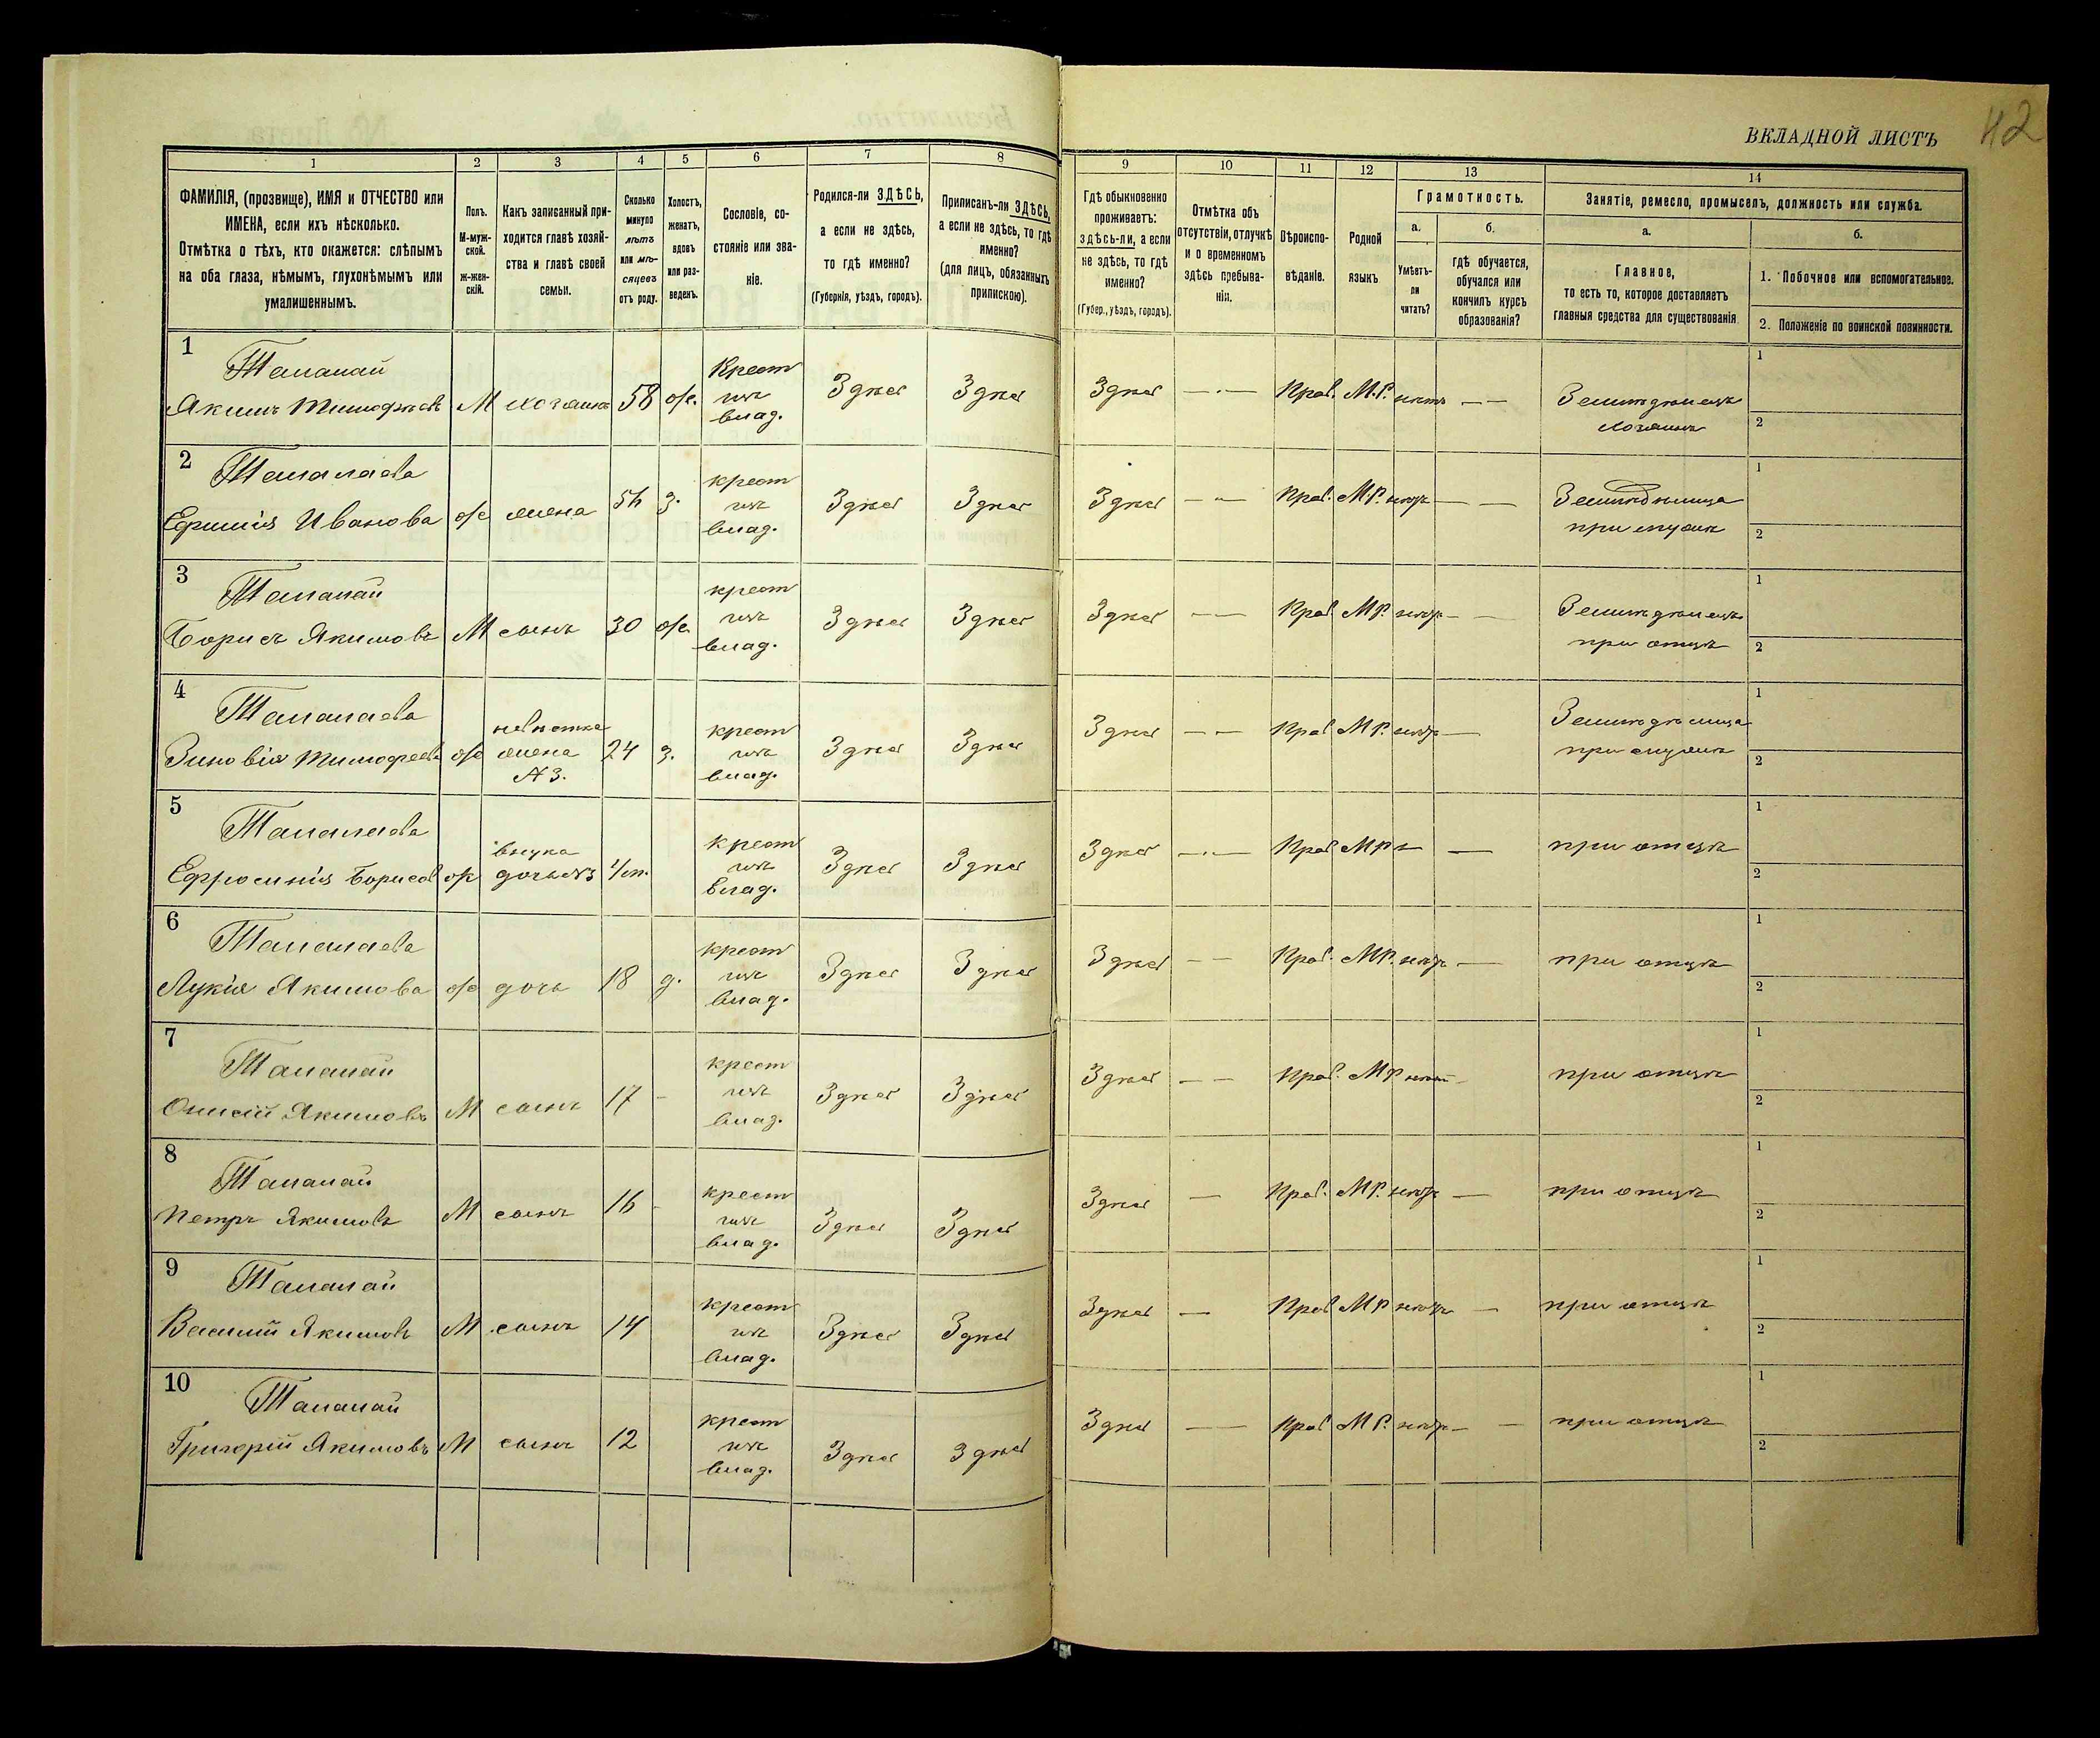 ВКЛАДНОЙ ЛИСТЪ
42
1 2 3 4 5 6 7 8
ФАМИЛІЯ, (прозвище), ИМЯ и ОТЧЕСТВО или
ИМЕНА, если ихъ нѣсколько.
Отмѣтка о тѣхъ, кто окажется: слѣпымъ
на оба глаза, нѣмымъ, глухонѣмымъ или
умалишеннымъ.
Полъ.
М-муж-
ской.
ж-жен-
скій.
Какъ записанный при-
ходится главѣ хозяй-
ства и главѣ своей
семьи.
Сколько
минуло
лѣтъ
или мѣ-
сяцевъ
отъ роду.
Холостъ,
женатъ,
вдовъ
или раз-
веденъ.
Сословіе, со-
стояніе или зва-
ніе.
Родился-ли ЗДѢСЬ,
а если не здѣсь,
то гдѣ именно?
(Губернія, уѣздъ, городъ).
Приписанъ-ли ЗДѢСЬ,
а если не здѣсь, то гдѣ
именно?
(для лицъ, обязанныхъ
припискою).
9 10 11 12 13 14
Гдѣ обыкновенно
проживаетъ:
здѣсь-ли, а если
не здѣсь, то гдѣ
именно?
(Губер., уѣздъ, городъ).
Отмѣтка объ
отсутствіи, отлучкѣ
и о временномъ
здѣсь пребыва-
ніи.
Вѣроиспо-
вѣданіе.
Родной
языкъ.
Грамотность.
а.
Умѣетъ-
ли
читать?
б.
гдѣ обучается,
обучался или
кончилъ курсъ
образованія?
Занятіе, ремесло, промыселъ, должность или служба.
а.
Главное,
то есть то, которое доставляетъ
главныя средства для существованія.
б.
1. Побочное или вспомогательное.
2. Положеніе по воинской повинности.
1
Талалай
Якимъ Тимофѣевъ М хозяинъ 58 ж. Крест изъ влад. Здѣсь Здѣсь Здѣсь Прав. М.Р. нѣтъ Земледѣлецъ
хозяинъ
1
2
2
Талалаева
Ефимія Иванова ж жена 54 з. крест изъ влад. Здѣсь Здѣсь Здѣсь Прав. М.Р. нѣтъ Земледѣлица
при мужѣ
1
2
3
Талалай
Борисъ Якимовъ М сынъ 30 ж. крест изъ влад. Здѣсь Здѣсь Здѣсь Прав. М.Р. нѣтъ Земледѣлецъ
при отцѣ
1
2
4
Талалаева
Зиновія Тимофеева ж невѣстка жена №3. 24 з. крест изъ влад. Здѣсь Здѣсь Здѣсь Прав М.Р. нѣтъ Земледѣлица
при мужѣ
1
2
5
Талалаева
Ефросинія Борисов ж внука дочь №3 крест изъ влад. Здѣсь Здѣсь Здѣсь Прав М.Р. при отцѣ
1
2
6
Талалаева
Лукія Якимова ж дочь 18 д. крест изъ влад. Здѣсь Здѣсь Здѣсь Прав. М.Р. нѣтъ при отцѣ
1
2
7
Талалай
Онисій Якимовъ М сынъ 17 - крест изъ влад. Здѣсь Здѣсь Здѣсь Прав. М.Р. при отцѣ
1
2
8
Талалай
Петръ Якимовъ М сынъ 16 - крест изъ влад. Здѣсь Здѣсь Здѣсь Прав. М.Р. нѣтъ при отцѣ
1
2
9
Талалай
Василій Якимовъ М сынъ 14 крест изъ влад. Здѣсь Здѣсь Здѣсь Прав М.Р. нѣтъ при отцѣ
1
2
10
Талалай
Григорій Якимовъ М сынъ 12 крест изъ влад. Здѣсь Здѣсь Здѣсь Прав М.Р. нѣтъ при отцѣ
1
2